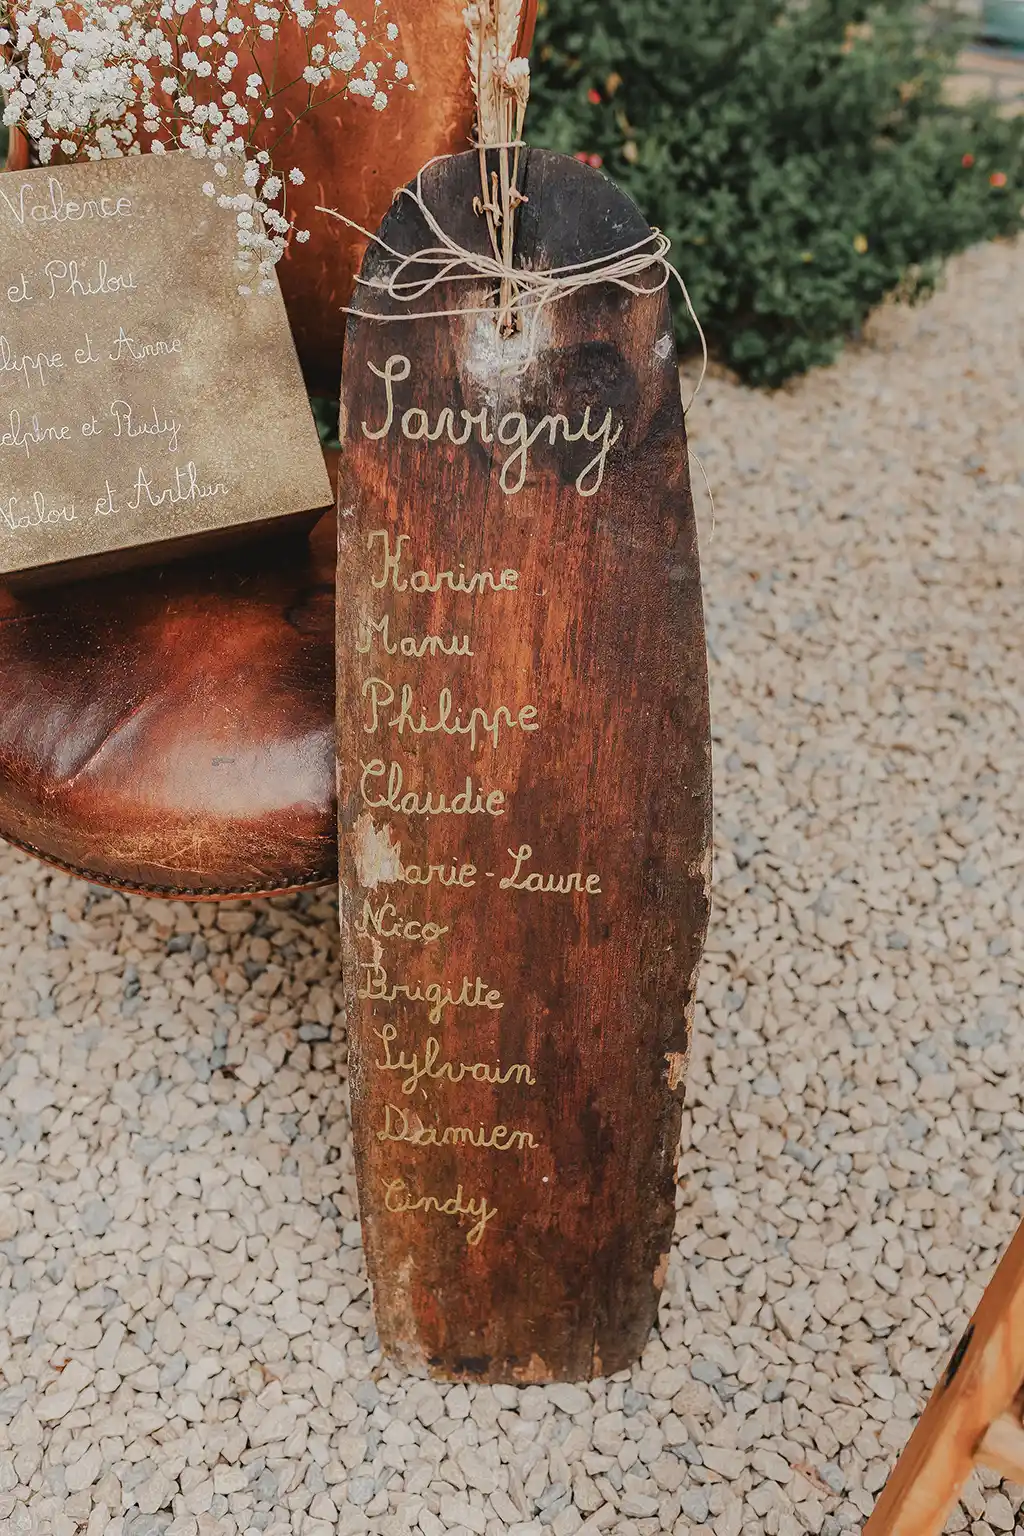 Valence
et Philou
lippe et Anne
elphine et Rudy
Nalou et Arthur
Savigny
Karine
Manu
Philippe
Claudie
Marie-Laure
Nico
Brigitte
Sylvain
Damien
Cindy